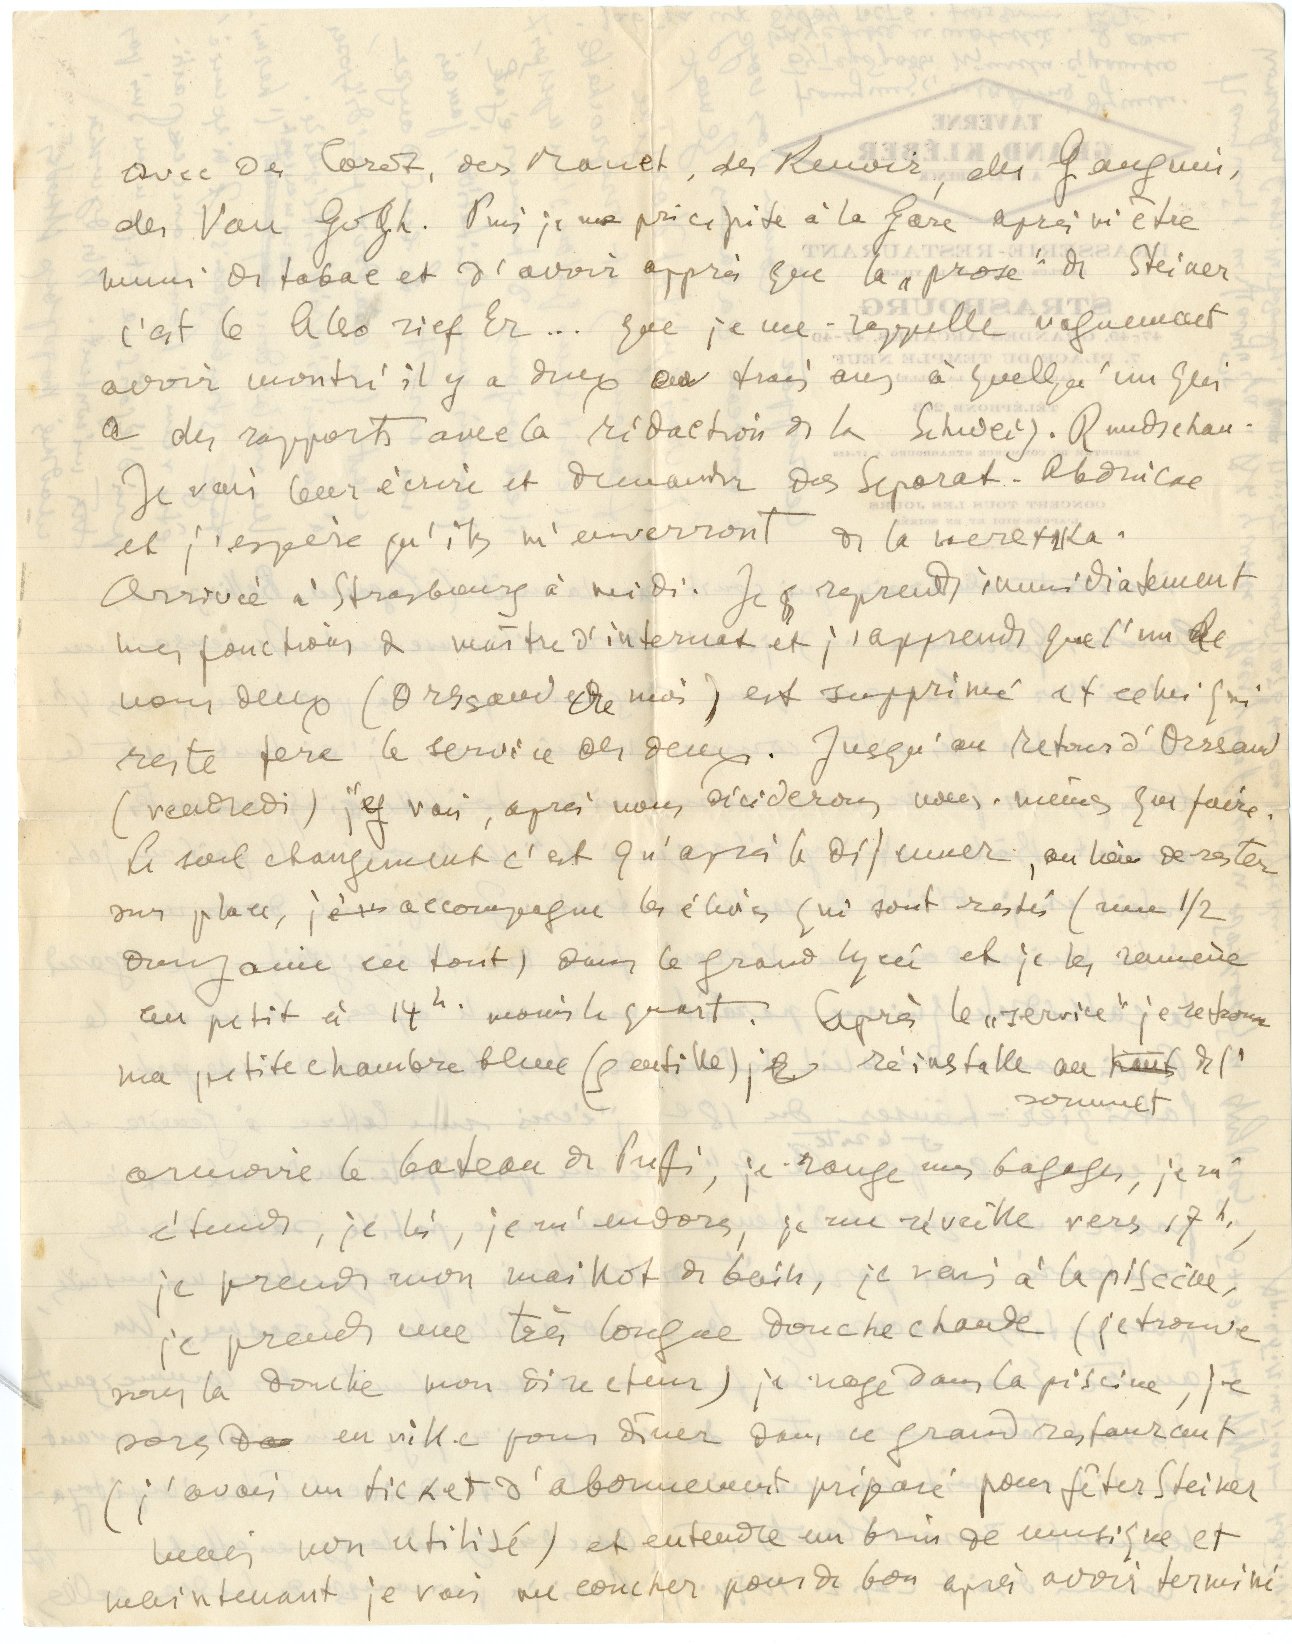 avec des Corot, des Manet, des Renoir, des Gauguin,
des Van Gogh. Puis je me précipite à la Gare après m'être
muni de tabac et d'avoir appris que la „prose" de Steiner
c'est le Also rief Er ... que je me rappelle vaguement
avoir montré il y a deux ou trois ans à quelqu'un qui
a des rapports avec la rédaction de la Schweiz. Rundschau.
Je vais leur écrire et demander des Separat-Abdrücke
et j'espère qu'ils m'enverront de la
Arrivée à Strasbourg à midi. Je reprends immédiatement
mes fonctions de maître d'internat et j'apprends que l'un de
nous deux (Orssaud ou moi) est supprimé et celui qui
reste fera le service des deux. Jusqu'au retour d'Orssaud
(vendredi) j'y vais, après nous déciderons nous-mêmes que faire.
Le seul changement c'est qu'après le déjeuner, au lieu de rester
sur place, j'accompagne les élèves qui sont restés (une 1/2
douzaine en tout) dans le grand lycée et je les ramène
au petit à 14 h. moins le quart. Après le „service" je retrouve
ma petite chambre bleue (gentille), je réinstalle au haut de l'
sommet
armoire le bateau de Pufi, je range mes bagages, je m'
étends, je lis, je m'endors, je me réveille vers 17 h.,
je prends mon maillot de bain, je vais à la piscine,
je prends une très longue douche chaude (je trouve
sous la douche mon directeur) je nage dans la piscine, je
sors en ville pour dîner dans ce grand restaurant
(j'avais un ticket d'abonnement préparé pour fêter Steiner
mais non utilisé) et entendre un brin de musique et
maintenant je vais me coucher pour de bon après avoir terminé